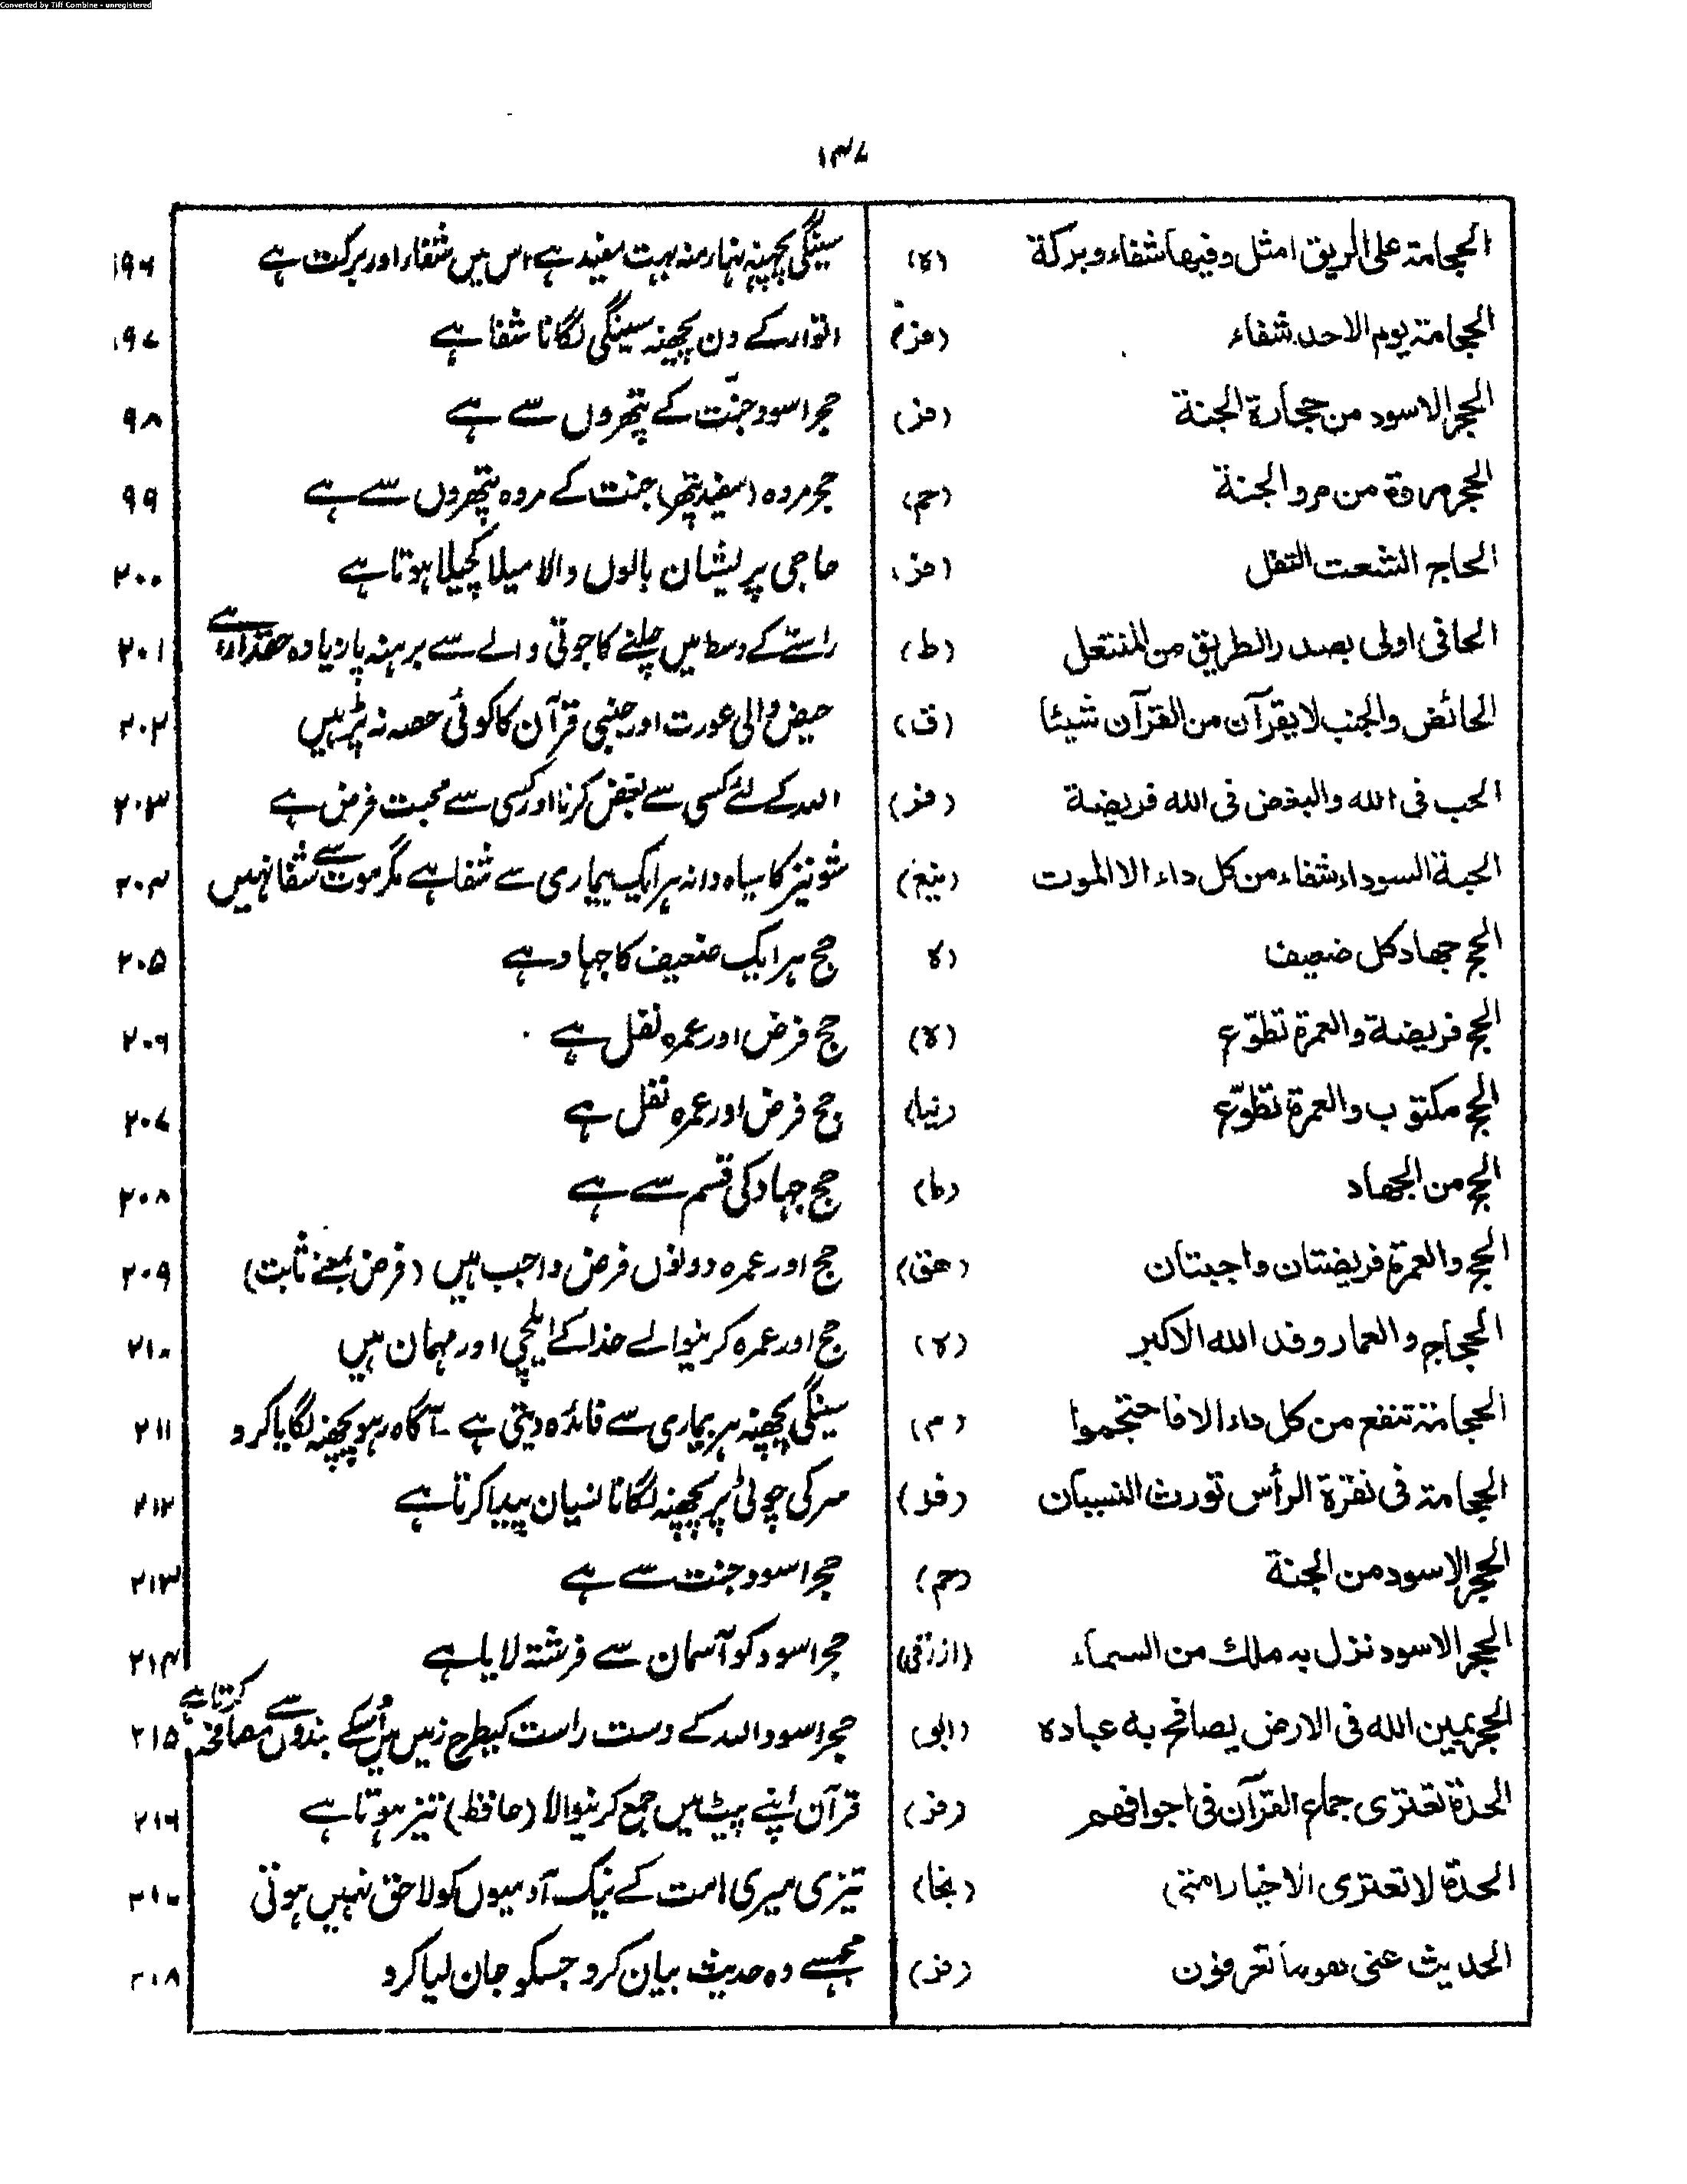 Converted by Tiff Combine - unregistered
۱۳۷
الحجامة علی الریق امثل وفیها شفاء وبرکة (ہ) سینگی پچھنہ نہار منہ بہت مفید ہے اس میں شفاء اور برکت ہے ۱۹۶
الحجامة یوم الاحد شفاء (فر) اتوار کے دن پچھنہ سینگی لگانا شفا ہے ۱۹۷
الحجر الاسود من حجارة الجنة (فر) حجر اسود جنّت کے پتھروں سے ہے ۹۸
الحجر مروة من مرو الجنة (حم) حجر مروہ (سفید پتھر) جنت کے مروہ پتھروں سے ہے ۹۹
الحاج الشعث التفل (فر) حاجی پریشان بالوں والا میلا کچیلا ہوتا ہے ۲۰۰
الحافی اولی بصدر الطریق من المنتعل (ط) راستے کے وسط میں چلنے کا جوتی والے سے برہنہ پا زیادہ حقدار ہے ۲۰۱
الحائض والجنب لا یقرآن من القرآن شیئا (ق) حیض والی عورت اور جنبی قرآن کا کوئی حصہ نہ پڑہیں ۲۰۲
الحب فی الله والبغض فی الله فریضة (فر) اللہ کے لئے کسی سے بغض کرنا اور کسی سے محبت فرض ہے ۲۰۳
الحبة السوداء شفاء من کل داء الا الموت شونیز کا سیاہ دانہ ہر ایک بیماری سے شفا ہے مگر موت سے شفا نہیں ۲۰۴
الحج جهاد کل ضعیف (ہ حج ہر ایک ضعیف کا جہاد ہے ۲۰۵
الحج فریضة والعمرة تطوّع (ہ) حج فرض اور عمرہ نفل ہے ۲۰۶
الحج مکتوب والعمرة تطوّع حج فرض اور عمرہ نفل ہے ۲۰۷
الحج من الجهاد (ط) حج جہاد کی قسم سے ہے ۲۰۸
الحج والعمرة فریضتان واجبتان (هق) حج اور عمرہ دونوں فرض واجب ہیں (فرض بمعنے ثابت) ۲۰۹
الحجاج والعمار وفد الله الاکبر (ہ) حج اور عمرہ کرنیوالے خدا کے ایلچی اور مہمان ہیں ۲۱۰
الحجامة تنفع من کل داء الا فاحتجموا (م) سینگی پچھنہ ہر بیماری سے فائدہ دیتی ہے ۔ آگاہ رہو پچھنہ لگایا کرو ۲۱۱
الحجامة فی نقرة الرأس تورث النسیان (فر) سر کی چوٹی پر پچھنہ لگانا نسیان پیدا کرتا ہے ۲۱۲
الحجر الاسود من الجنة (حم) حجر اسود جنت سے ہے ۲۱۳
الحجر الاسود نزل به ملك من السماء (ازرقی) حجر اسود کو آسمان سے فرشتہ لایا ہے ۲۱۴
الحجر یمین الله فی الارض یصافح به عباده (ابو) حجر اسود اللہ کے دست راست کیطرح زمیں میں اُسکے بندوں سے مصافحہ کرتا ہے ۲۱۵
الحدة تعتری جماع القرآن فی اجوافهم (فر) قرآن اپنے پیٹ میں جمع کرنیوالا (حافظ) تیز ہوتا ہے ۲۱۶
الحدة لا تعتری الاخیار امتی تیزی میری امت کے نیک آدمیوں کو لاحق نہیں ہوتی
الحدیث عنی تعرفون (فر) مجھسے وہ حدیث بیان کرو جسکو جان لیا کرو ۲۱۸